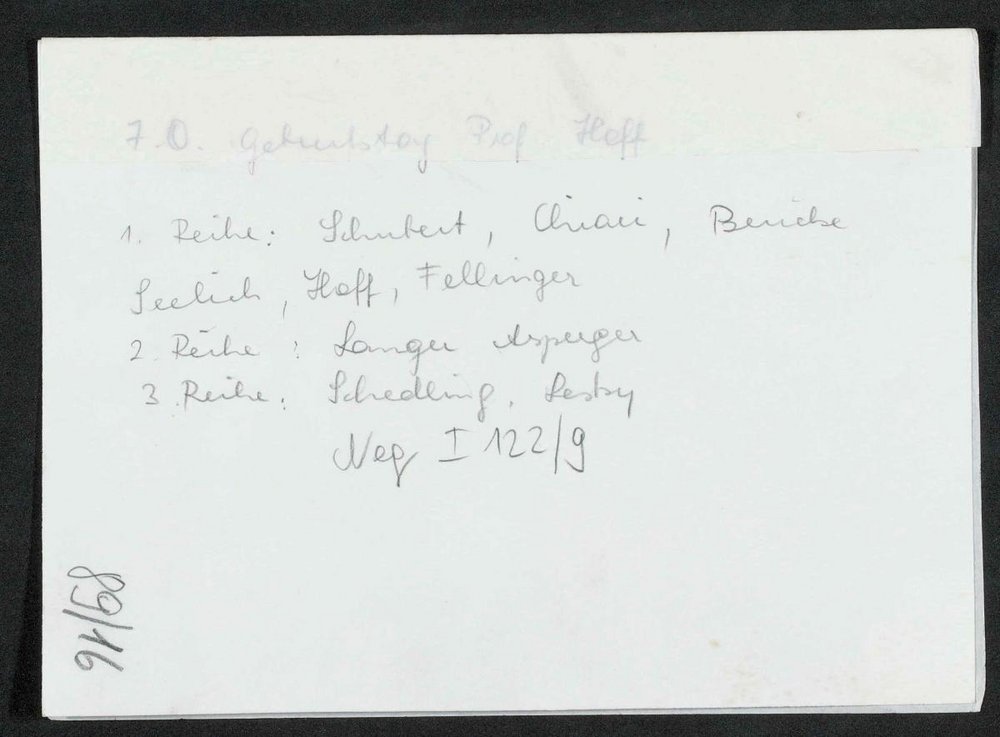 70. Geburtstag Prof Hoff
1. Reihe: Schubert, Chiari, Benicke
Seelich, Hoff, Fellinger
2. Reihe: Langer Asperger
3. Reihe: Schedling, Lesky
Neg I 122/9
89/16